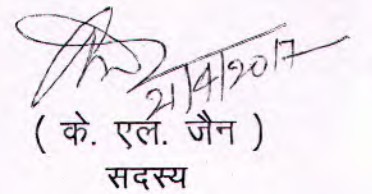 21/4/2017
( के. एल. जैन )
सदस्य